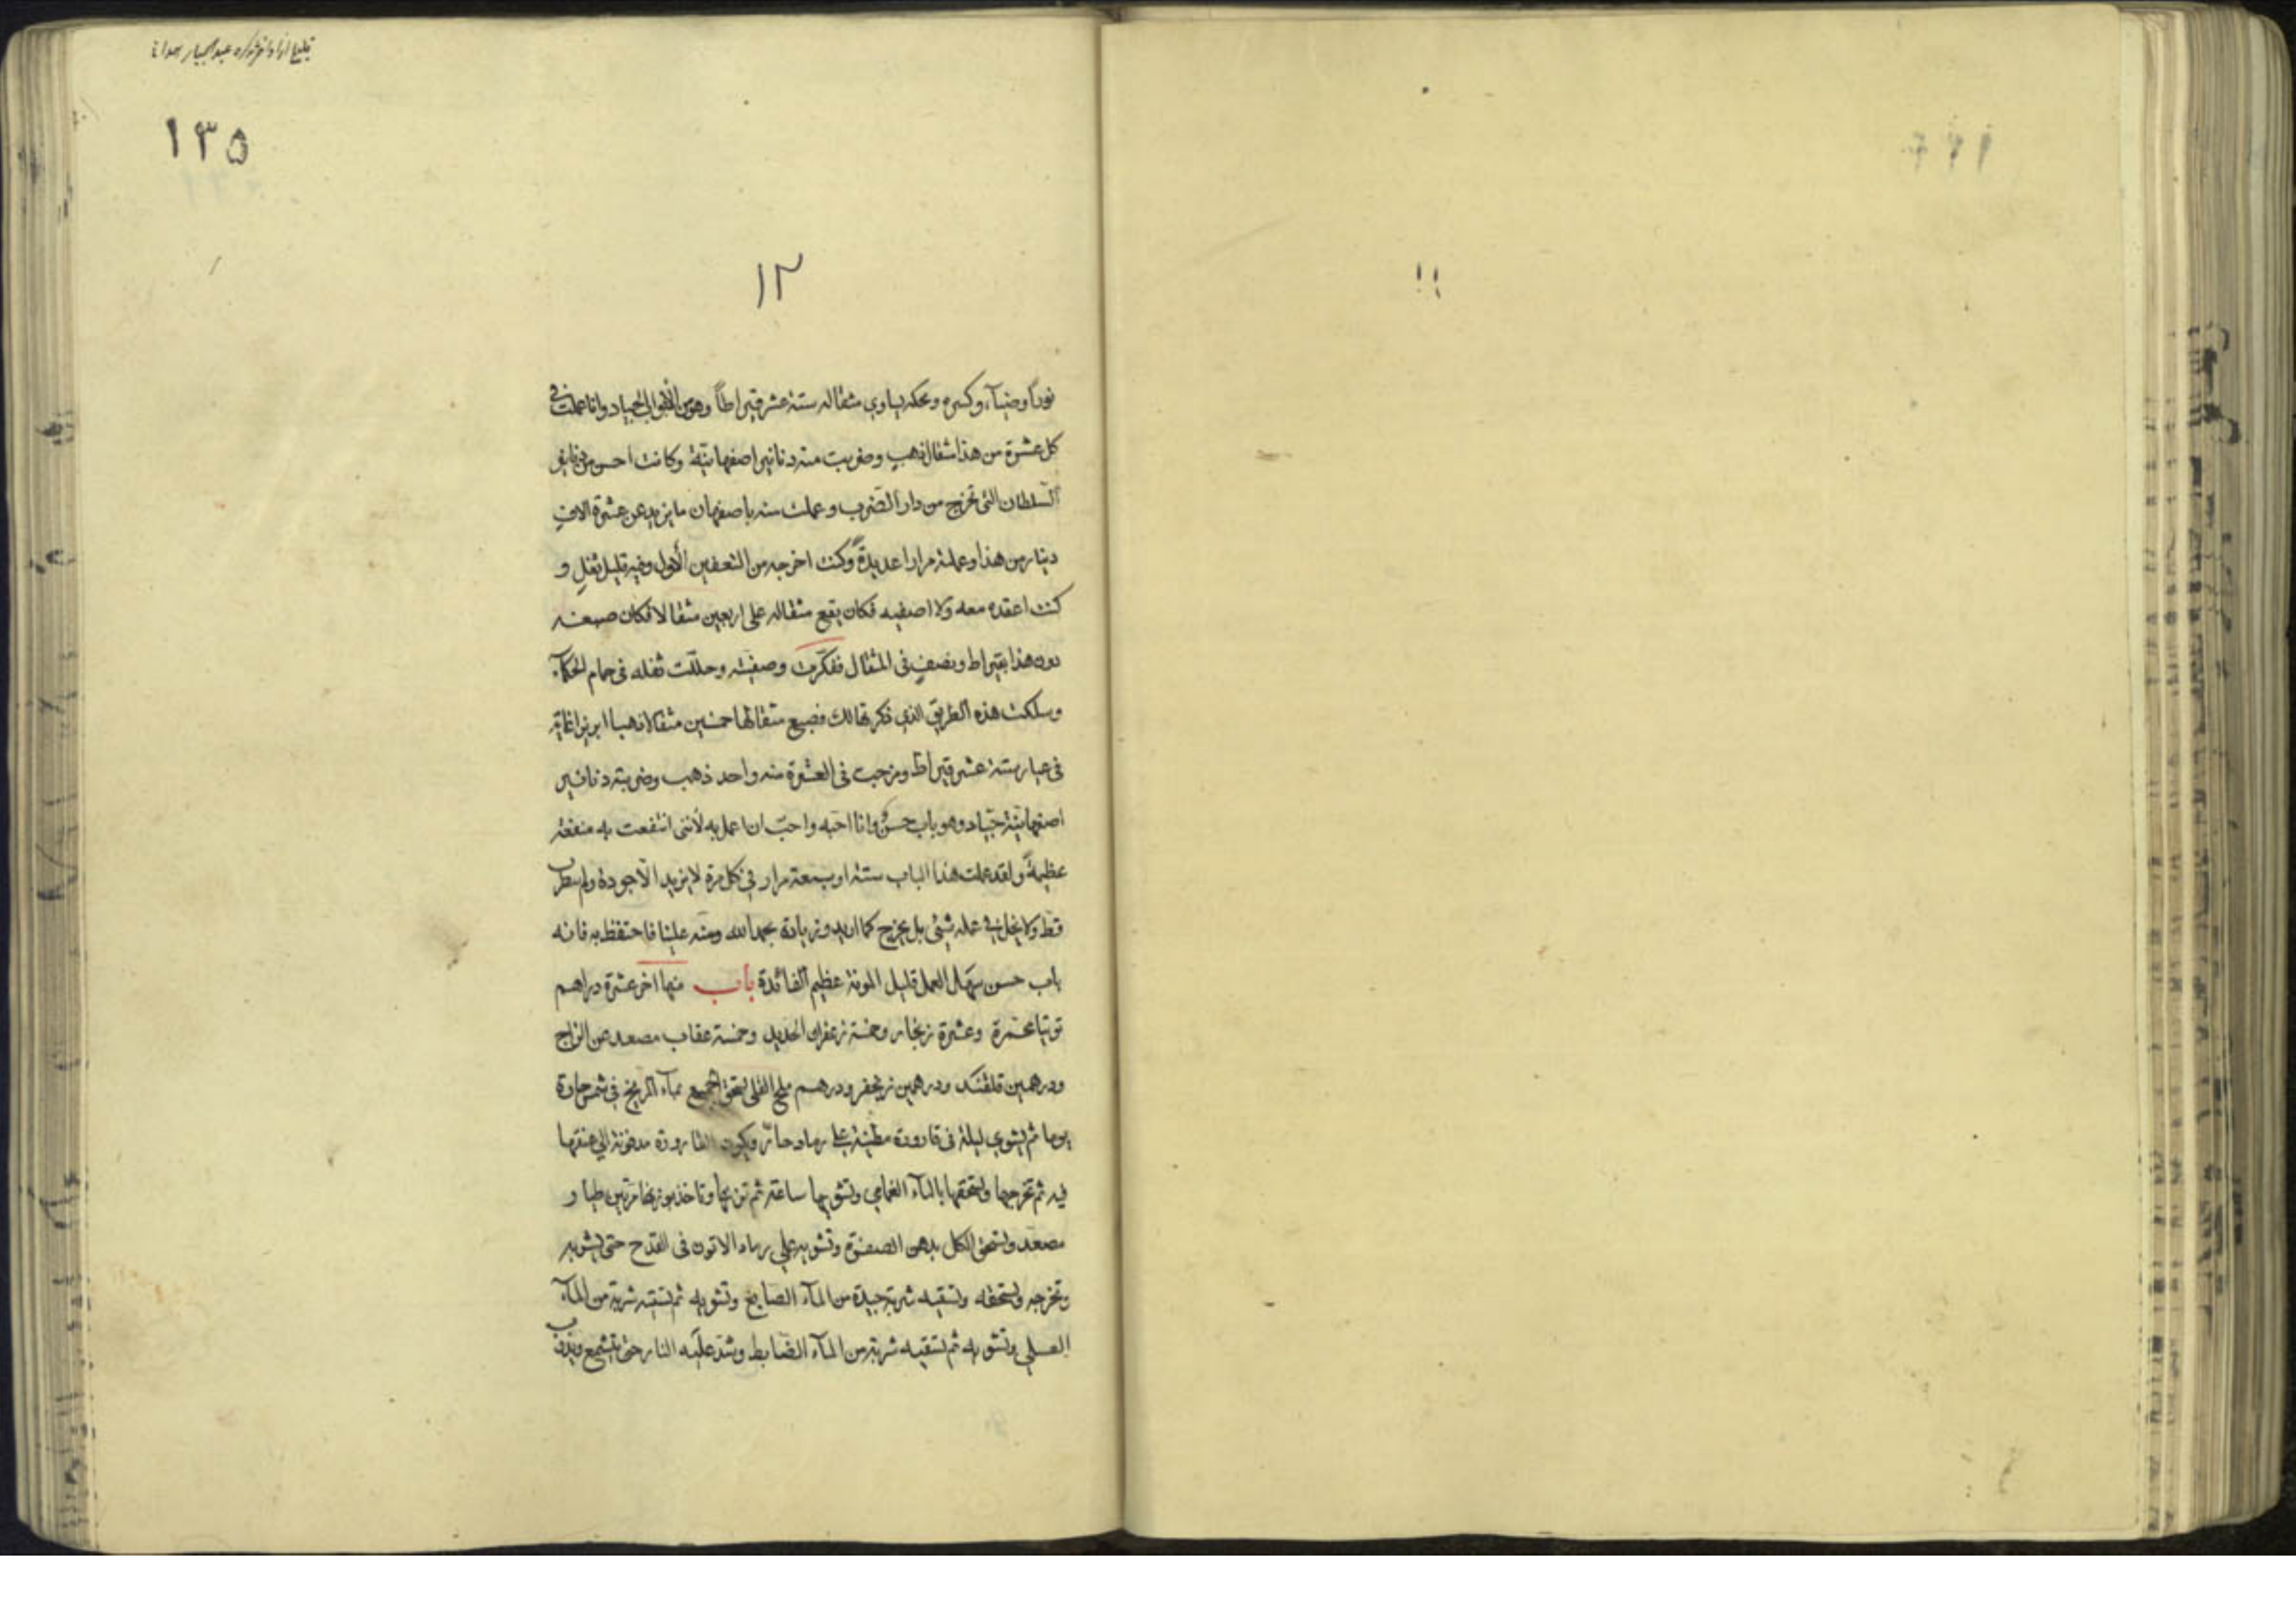 ١٣٥
١٢
نوراً وضيآء وكسره ومحكه يساوي مثقاله ستة عشر قيراطاً وهو من الأبواب الجياد وانا عملت في
كل عشرة من هذا مثقال ذهب وضربت منه دنانير اصفهانية وكانت احسن من دنانير
السلطان التى تخرج من دار الضرب وعملت منه باصفهان ما يزيد عن عشرة الاف
دينار من هذا وعملته مرارا عديدةً وكنت اخرجه من التعفين الأول وفيه قليل ثفل و
كنت اعقده معه ولا اصفيه فكان يقع مثقاله على اربعين مثقالا فكان صبغه
دون هذا بقيراط ونصف فى المثقال ففكرت وصفيته وحللت ثفله فى حمام الحكمآء
وسلكت هذه الطريق الذي ذكرتها لك فصبغ مثقالها خمسين مثقالا ذهبا ابريزا غاية
فى عيار ستة عشر قيراط ومزجت فى العشرة منه واحد ذهب وضربته دنانير
اصفهانية جياد وهو باب حسنٌ وانا احبه واحبّ ان اعمل به لأننى انتفعت به منفعة
عظيمةً ولقد عملت هذا الباب ستة او سبعة مرار في كل مرة لا يزيد الّا جودة ولم يبطل
قط ولا يخل في عمله شئ بل يخرج كما اريد وزيادة بحمد الله ومنه علينا فاحتفظ به فانه
باب حسن سهل العمل قليل المونة عظيم الفائدة باب منها اخر عشرة دراهم
توتيا محمرة وعشرة زنجار وخمسة زعفران الحديد وخمسة عقاب مصعد عن الزاج
ودرهمين قلقند ودرهمين زنجفر ودرهم ملح القلى يسحق الجميع بمآء المريخ في شمس حارة
يوما ثم يشوي ليلة فى قارورة مطينة على رماد حارّ ويكون القارورة مدفونة الي عنقها
فيه ثم تخرجها وتسحقها بالمآء الغمامي وتشويها ساعة ثم تزنها وتاخذ بوزنها مرتين طيار
مصعد وتسحق الكل بدهن الصفرة وتشويه علي رماد الاتون فى القدح حتى يشويه
وتخرجه وتسحقه وتسقيه شربة جيدة من المآء الصابغ وتشويه ثم تسقيه شربة من المآء
العسلي وتشويه ثم تسقيه شربة من المآء الضابط وشد عليه النار حتى يتشمع ويذوب